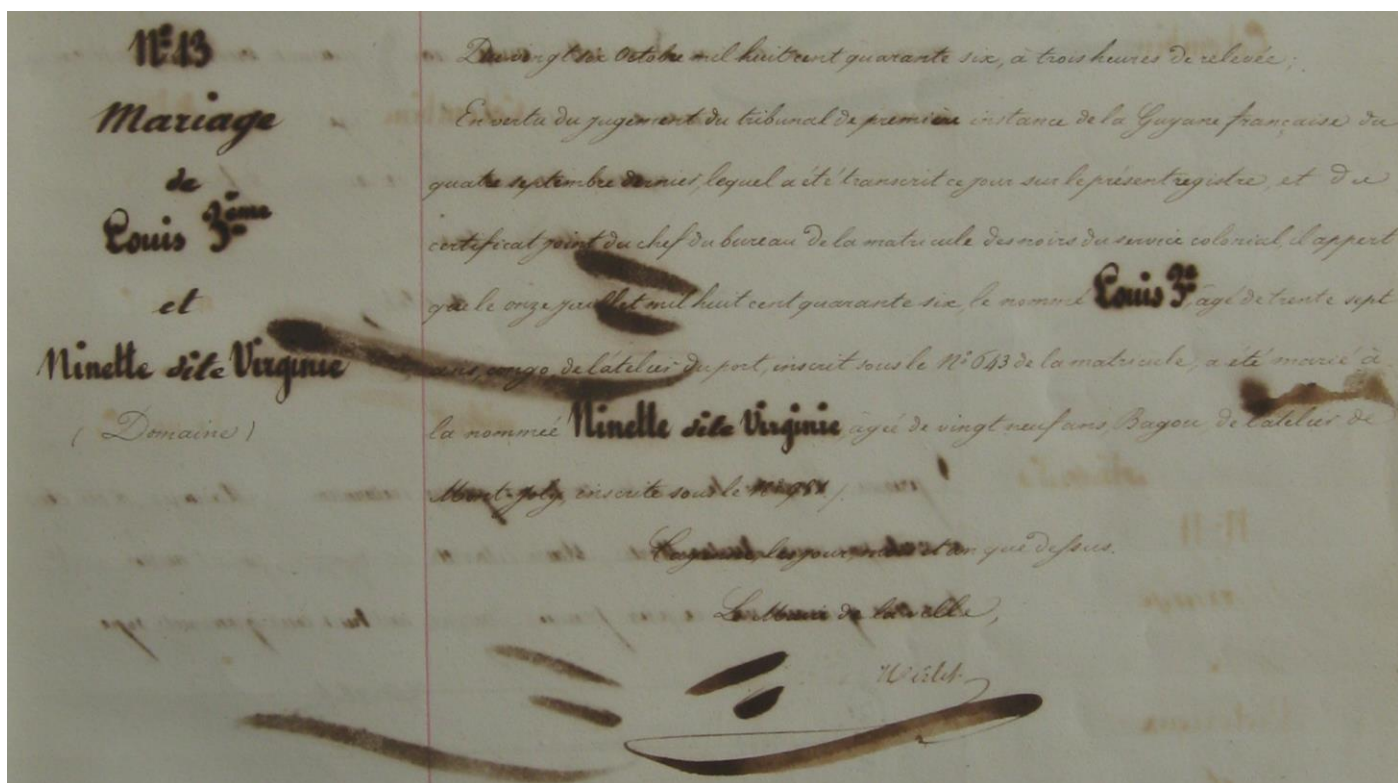 N° 13
Mariage
de
Louis 3ème
et
Ninette dite Virginie
( Domaine )
Du vingt six Octobre mil huit cent quarante six, à trois heures de relevée;
En vertu du jugement du tribunal de première instance de la Guyane française du
quatre septembre dernier, lequel a été transcrit ce jour sur le présent registre, et du
certificat joint du chef du bureau de la matricule des noirs du service colonial, il appert
que le onze juillet mil huit cent quarante six, le nommé Louis 3e, âgé de trente sept
ans, congo, de l'atelier du port, inscrit sous le N° 643 de la matricule, a été marié à
la nommée Ninette dite Virginie, âgée de vingt neuf ans, Bagou, de l'atelier de
Mont-Joly, inscrite sous le N°
Cayenne, les jour, mois et an que dessus.
Le Maire de la ville,